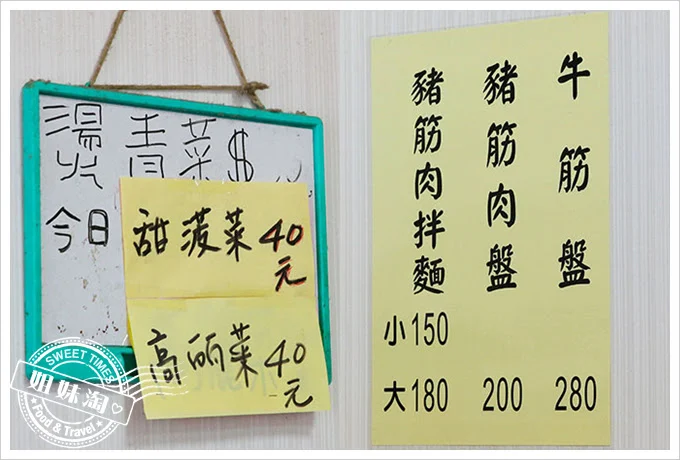 燙青菜$
今日
甜菠菜40
元
高麗菜40
元
牛筋盤
280
豬筋肉盤
200
豬筋肉拌麵
小150
大180
SWEET TIMES
姐妹淘
Food & Travel